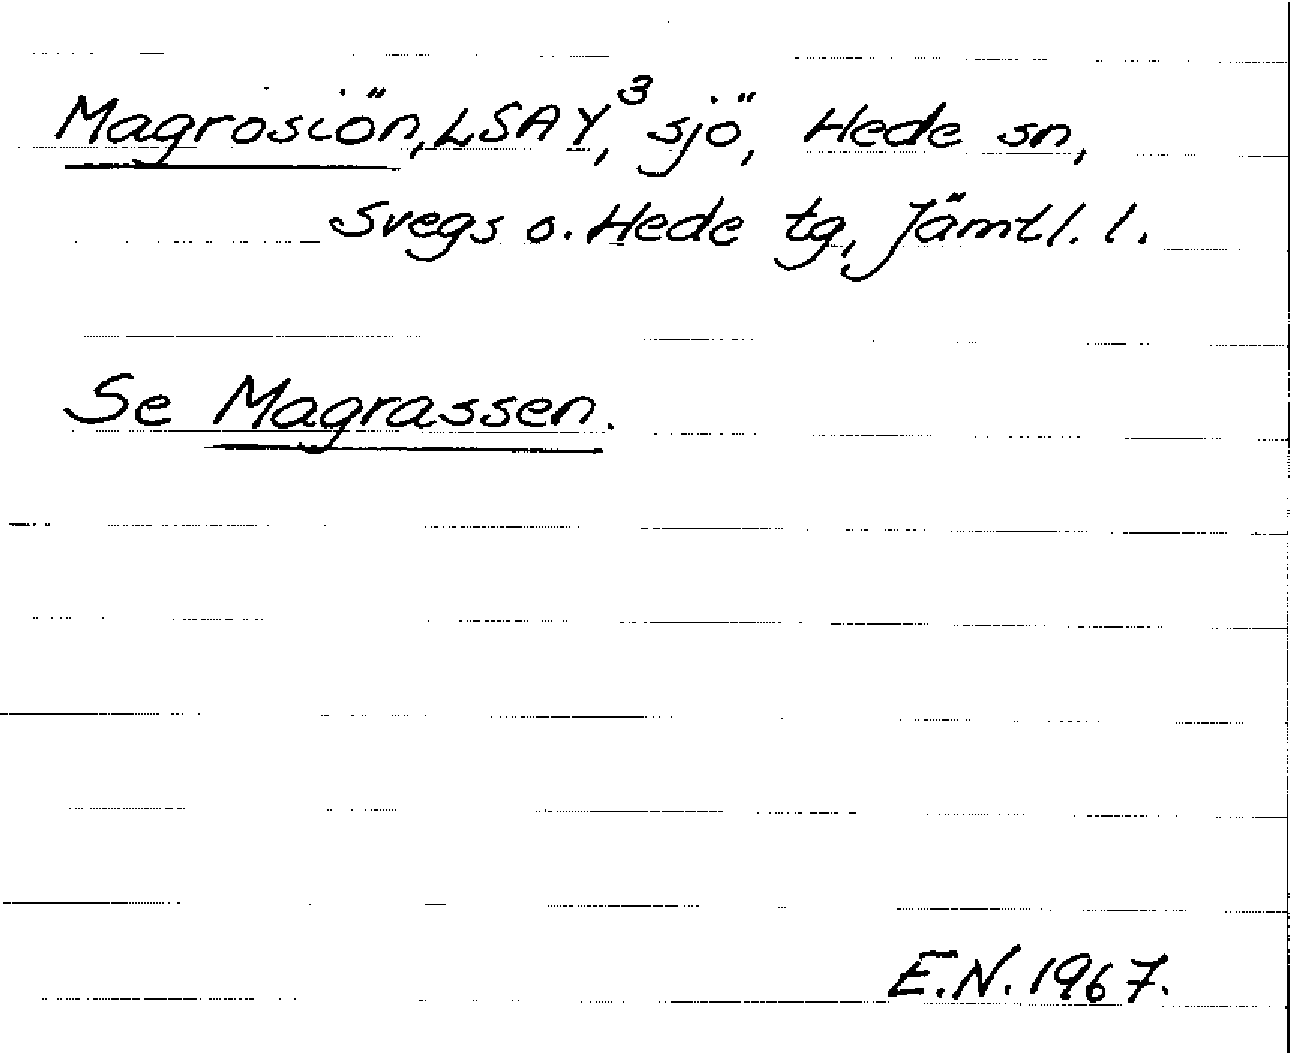 Magrosiön, LSA Y³, sjö, Hede sn,
Svegs o. Hede tg, Jämtl. l.
Se Magrassen.
E.N. 1967.